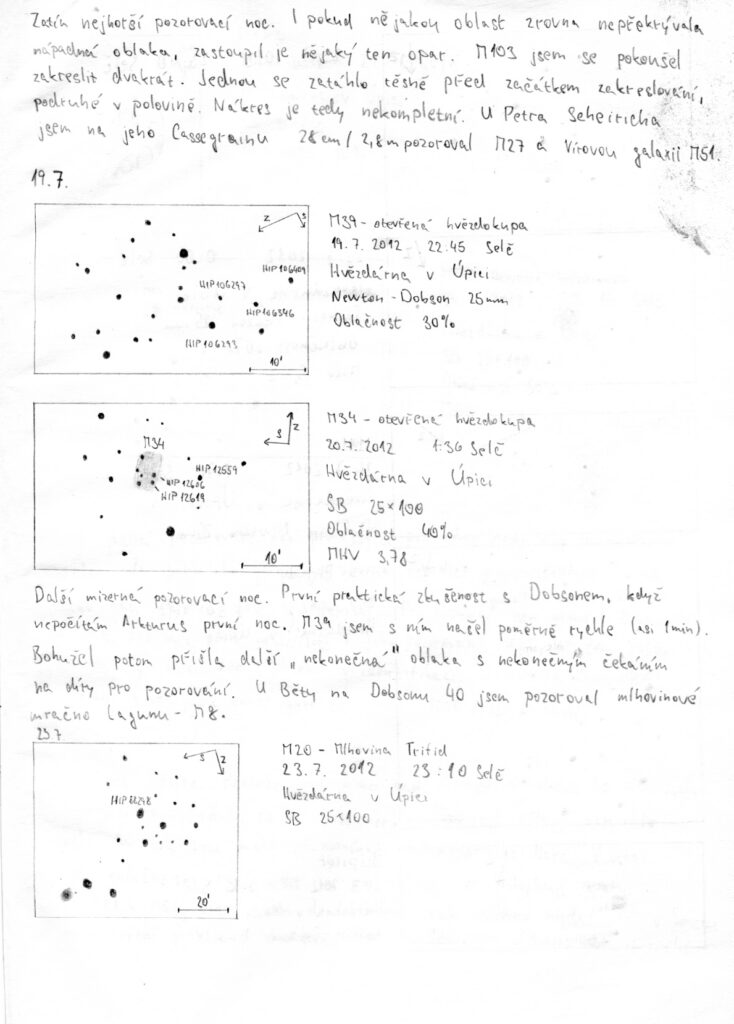 Zatím nejhorší pozorovací noc. I pokud nějakou oblast zrovna nepřekrývala
nápadná oblaka, zastoupil je nějaký ten opar. M103 jsem se pokoušel
zakreslit dvakrát. Jednou se zatáhlo těsně před začátkem zakreslování,
podruhé v polovině. Nákres je tedy nekompletní. U Petra Scheiricha
jsem na jeho Cassegrainu 28 cm / 2,8 m pozoroval M27 a Vírovou galaxii M51.
19.7.
Z S
M39 - otevřená hvězdokupa
19.7. 2012 22:45 Selč
Hvězdárna v Úpici
Newton - Dobson 25mm
Oblačnost 30%
HIP 106409
HIP 106297
HIP 106346
HIP 106293
10'
M34 - otevřená hvězdokupa
20.7. 2012 1:36 Selč
Hvězdárna v Úpici
SB 25×100
Oblačnost 40%
MHV 3,78
S Z
M34
HIP 12559
HIP 12606
HIP 12619
10'
Další mizerná pozorovací noc. První praktická zkušenost s Dobsonem, když
nepočítám Arkturus první noc. M39 jsem s ním našel poměrně rychle (asi 1min).
Bohužel potom přišla další „nekonečná" oblaka s nekonečným čekáním
na díry pro pozorování. U Běty na Dobsonu 40 jsem pozoroval mlhovinové
mračno Lagunu - M8.
23.7
S Z
M20 - Mlhovina Trifid
23.7. 2012 23:10 Selč
Hvězdárna v Úpici
SB 25×100
20'